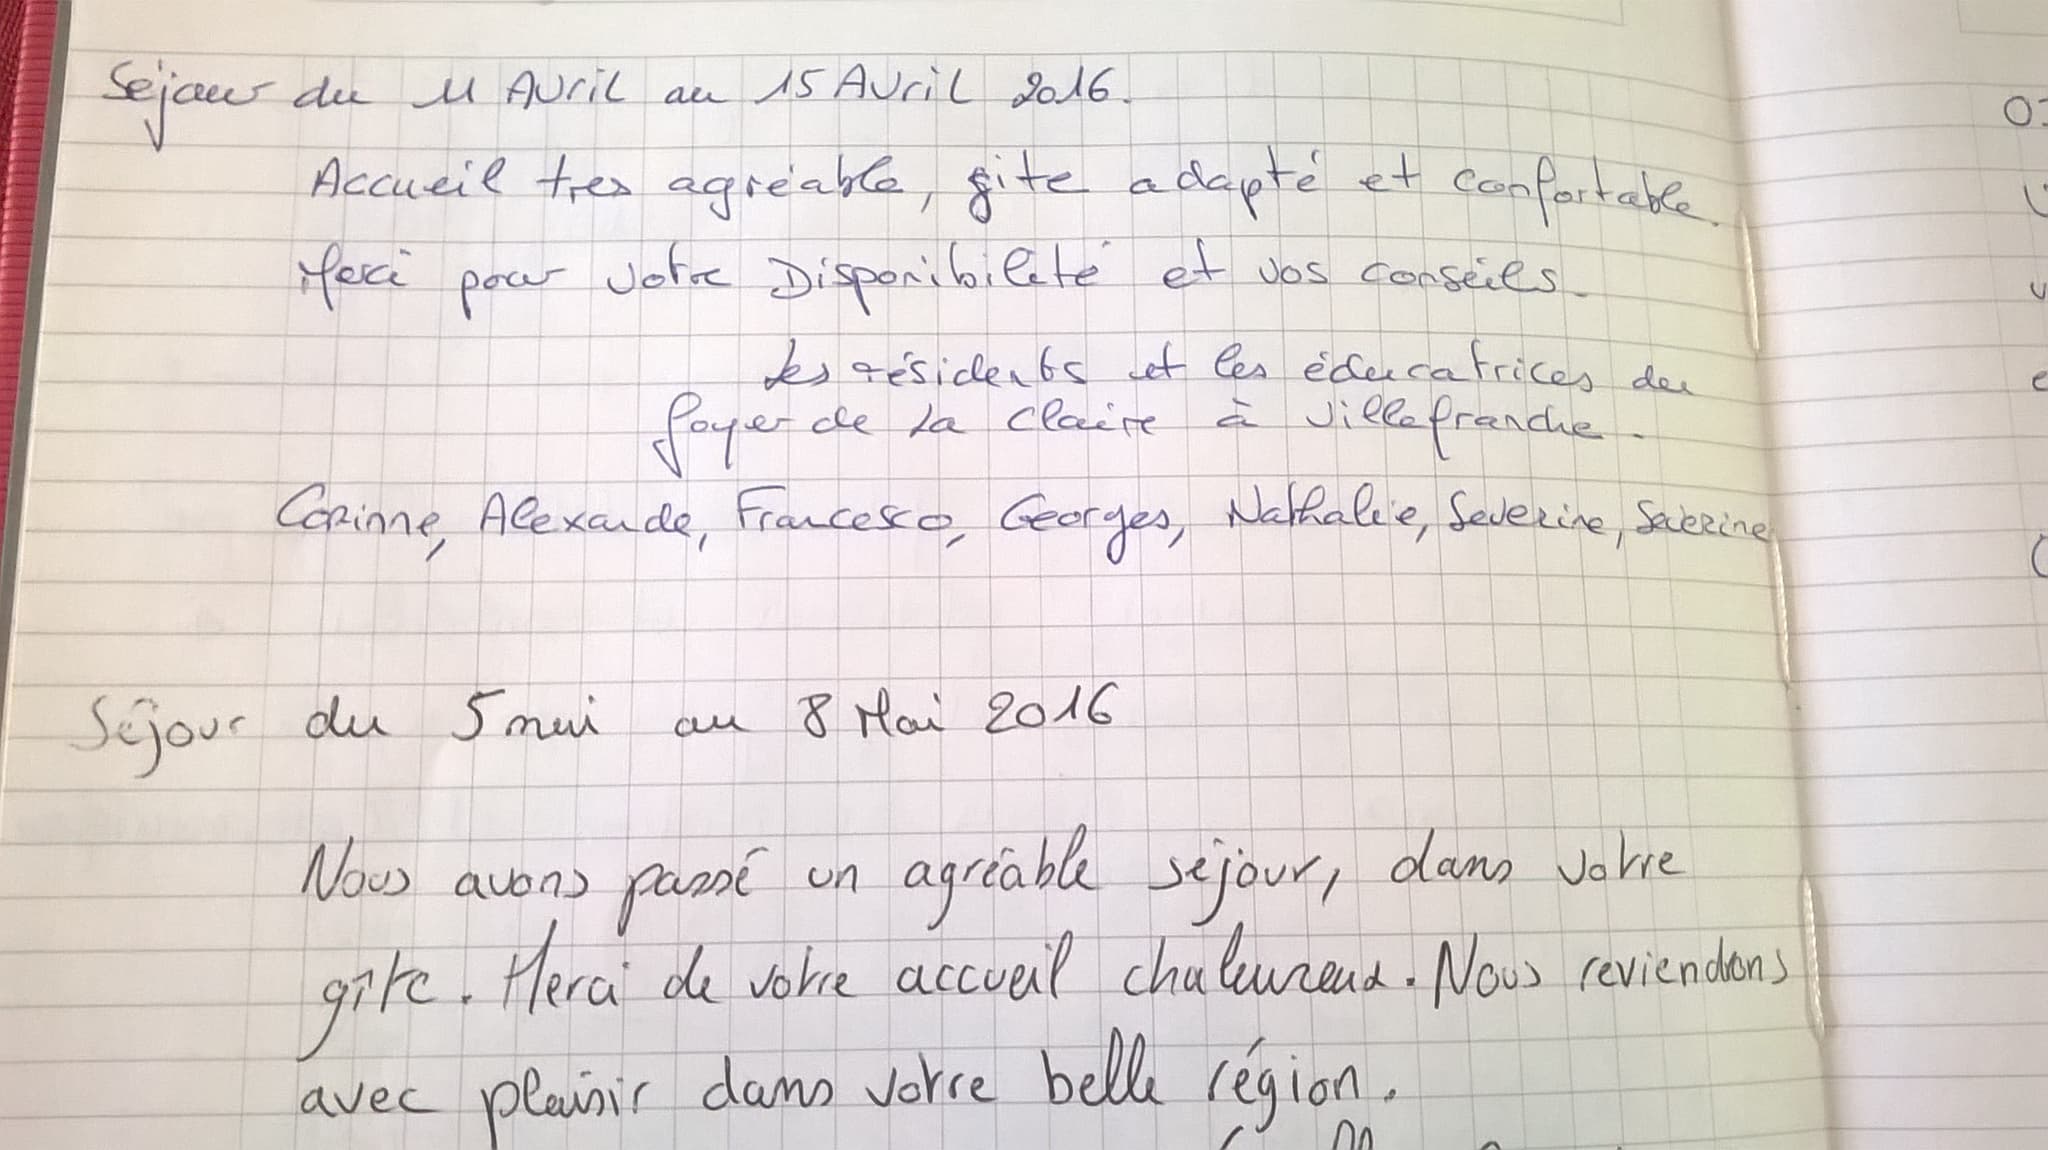 Séjour du 11 Avril au 15 Avril 2016.
Accueil tres agréable, gite adapté et confortable.
Merci pour votre Disponibilité et vos conseils.
Les résidents et les éducatrices du
foyer de la Claire à Villefranche.
Corinne, Alexande, Francesco, Georges, Nathalie, Severine, Severine
Séjour du 5 mai au 8 Mai 2016
Nous avons passé un agréable séjour, dans votre
gîte. Merci de votre accueil chaleureux. Nous reviendrons
avec plaisir dans votre belle région.